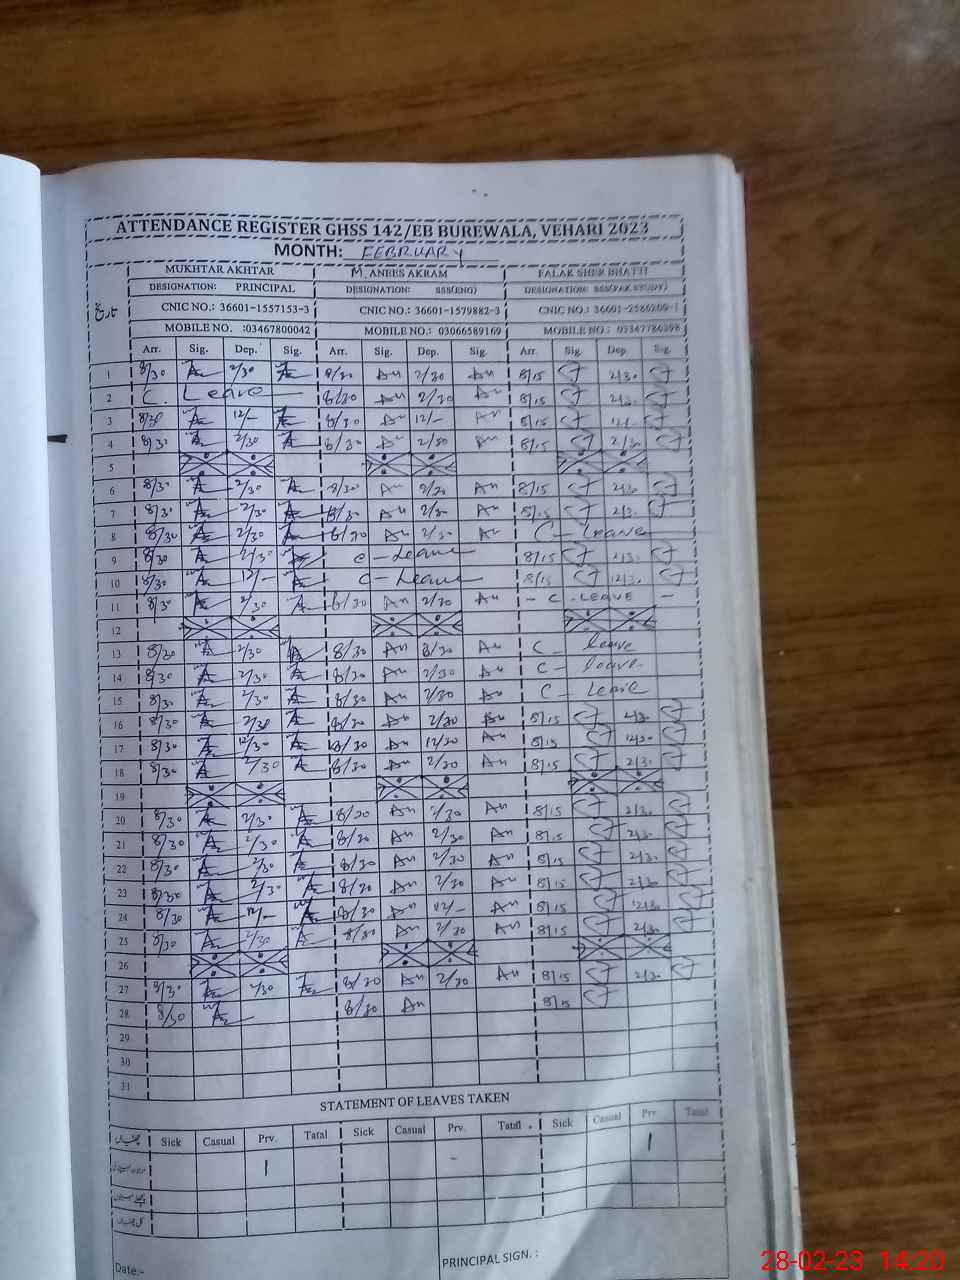 ATTENDANCE REGISTER GHSS 142/EB BUREWALA, VEHARI 2023
MONTH: FEBRUARY
تاریخ MUKHTAR AKHTAR M. ANEES AKRAM FALAK SHER BHATTI
DESIGNATION: PRINCIPAL DESIGNATION: SSS(ENG) DESIGNATION: SSS(PAK STUDY)
CNIC NO.: 36601-1557153-3 CNIC NO.: 36601-1579882-3 CNIC NO.:
MOBILE NO. :03467800042 MOBILE NO.: 03066589169 MOBILE NO.:
Arr. Sig. Dep. Sig. Arr. Sig. Dep. Sig. Arr. Sig. Dep. Sig.
1 8/30 2/30 8/30 An 2/30 An 8/15 2/30
2 C. Leave 8/30 An 2/30 An 8/15 2/30
3 8/30 12/- 8/30 An 12/- An 8/15 12/-
4 8/30 2/30 8/30 An 2/30 An 8/15 2/30
5
6 8/30 2/30 8/30 An 2/30 An 8/15 2/30
7 8/30 2/30 8/30 An 2/30 An 8/15 2/30
8 8/30 2/30 8/30 An 2/30 An C - Leave
9 8/30 2/30 C - Leave 8/15 2/30
10 8/30 12/- C - Leave 8/15 12/30
11 8/30 2/30 8/30 An 2/30 An - C. LEAVE -
12
13 8/30 2/30 8/30 An 2/30 An C - leave
14 8/30 2/30 8/30 An 2/30 An C - leave
15 8/30 2/30 8/30 An 2/30 An C - Leave
16 8/30 2/30 8/30 An 2/30 An 8/15 2/30
17 8/30 12/30 8/30 An 12/30 An 8/15 12/30
18 8/30 2/30 8/30 An 2/30 An 8/15 2/30
19
20 8/30 2/30 8/30 An 2/30 An 8/15 2/30
21 8/30 2/30 8/30 An 2/30 An 8/15 2/30
22 8/30 2/30 8/30 An 2/30 An 8/15 2/30
23 8/30 2/30 8/30 An 2/30 An 8/15 2/30
24 8/30 12/- 8/30 An 12/- An 8/15 12/30
25 8/30 2/30 8/30 An 2/30 An 8/15 2/30
26
27 8/30 2/30 8/30 An 2/30 An 8/15 2/30
28 8/30 8/30 An 8/15
29
30
31
STATEMENT OF LEAVES TAKEN
Sick Casual Prv. Tatal Sick Casual Prv. Tatal Sick Casual Prv. Tatal
1 - 1
Date:- PRINCIPAL SIGN. :
28-02-23 14:20